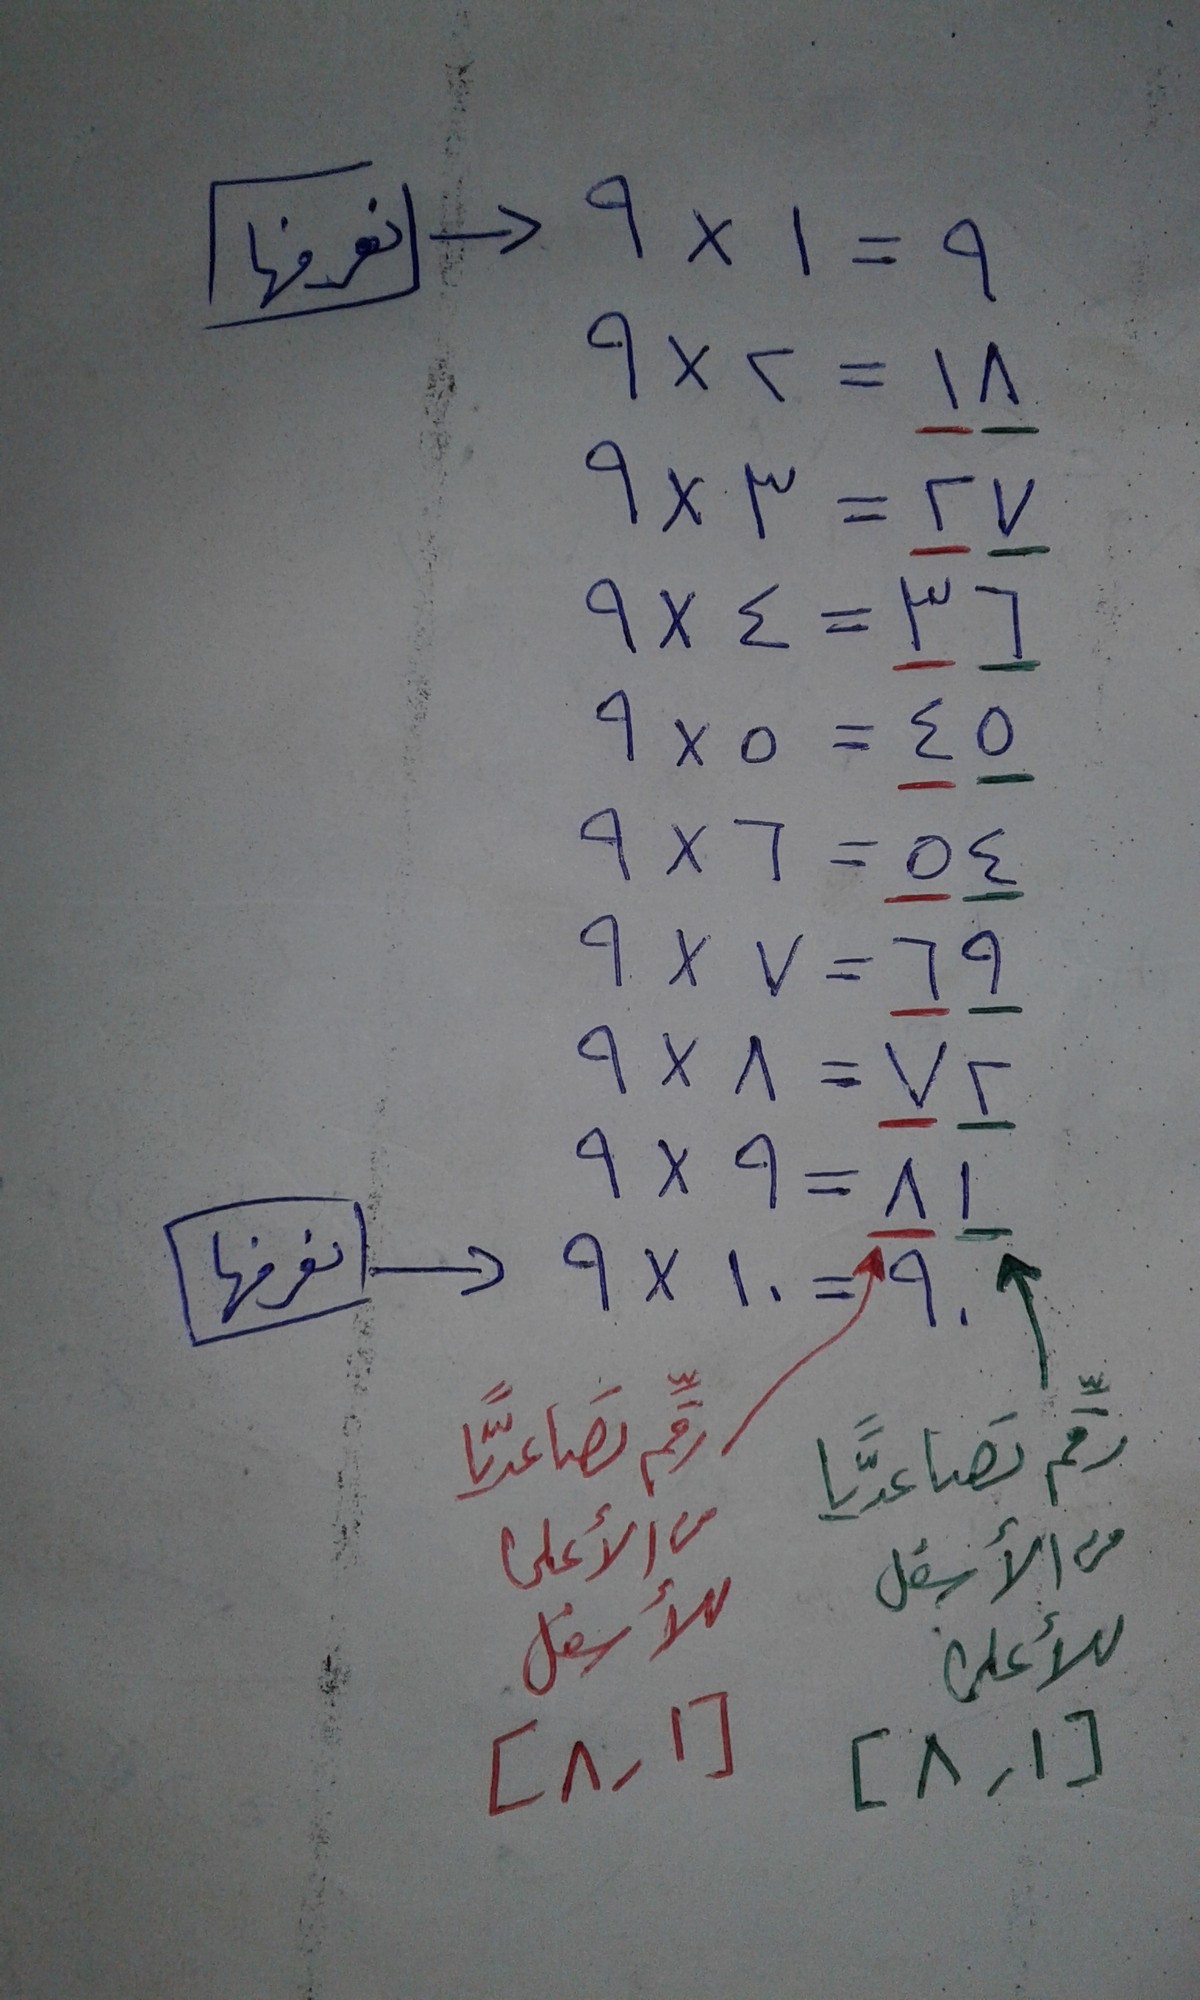 نعرفها → ٩ × ١ = ٩
٩ × ٢ = ١٨
٩ × ٣ = ٢٧
٩ × ٤ = ٣٦
٩ × ٥ = ٤٥
٩ × ٦ = ٥٤
٩ × ٧ = ٦٩
٩ × ٨ = ٧٢
٩ × ٩ = ٨١
نعرفها → ٩ × ١٠ = ٩٠
رقِّم تصَاعديًّا
من الأعلى
للأسفل
[٨,١]
رقِّم تصَاعديًّا
من الأسفل
للأعلى
[٨,١]